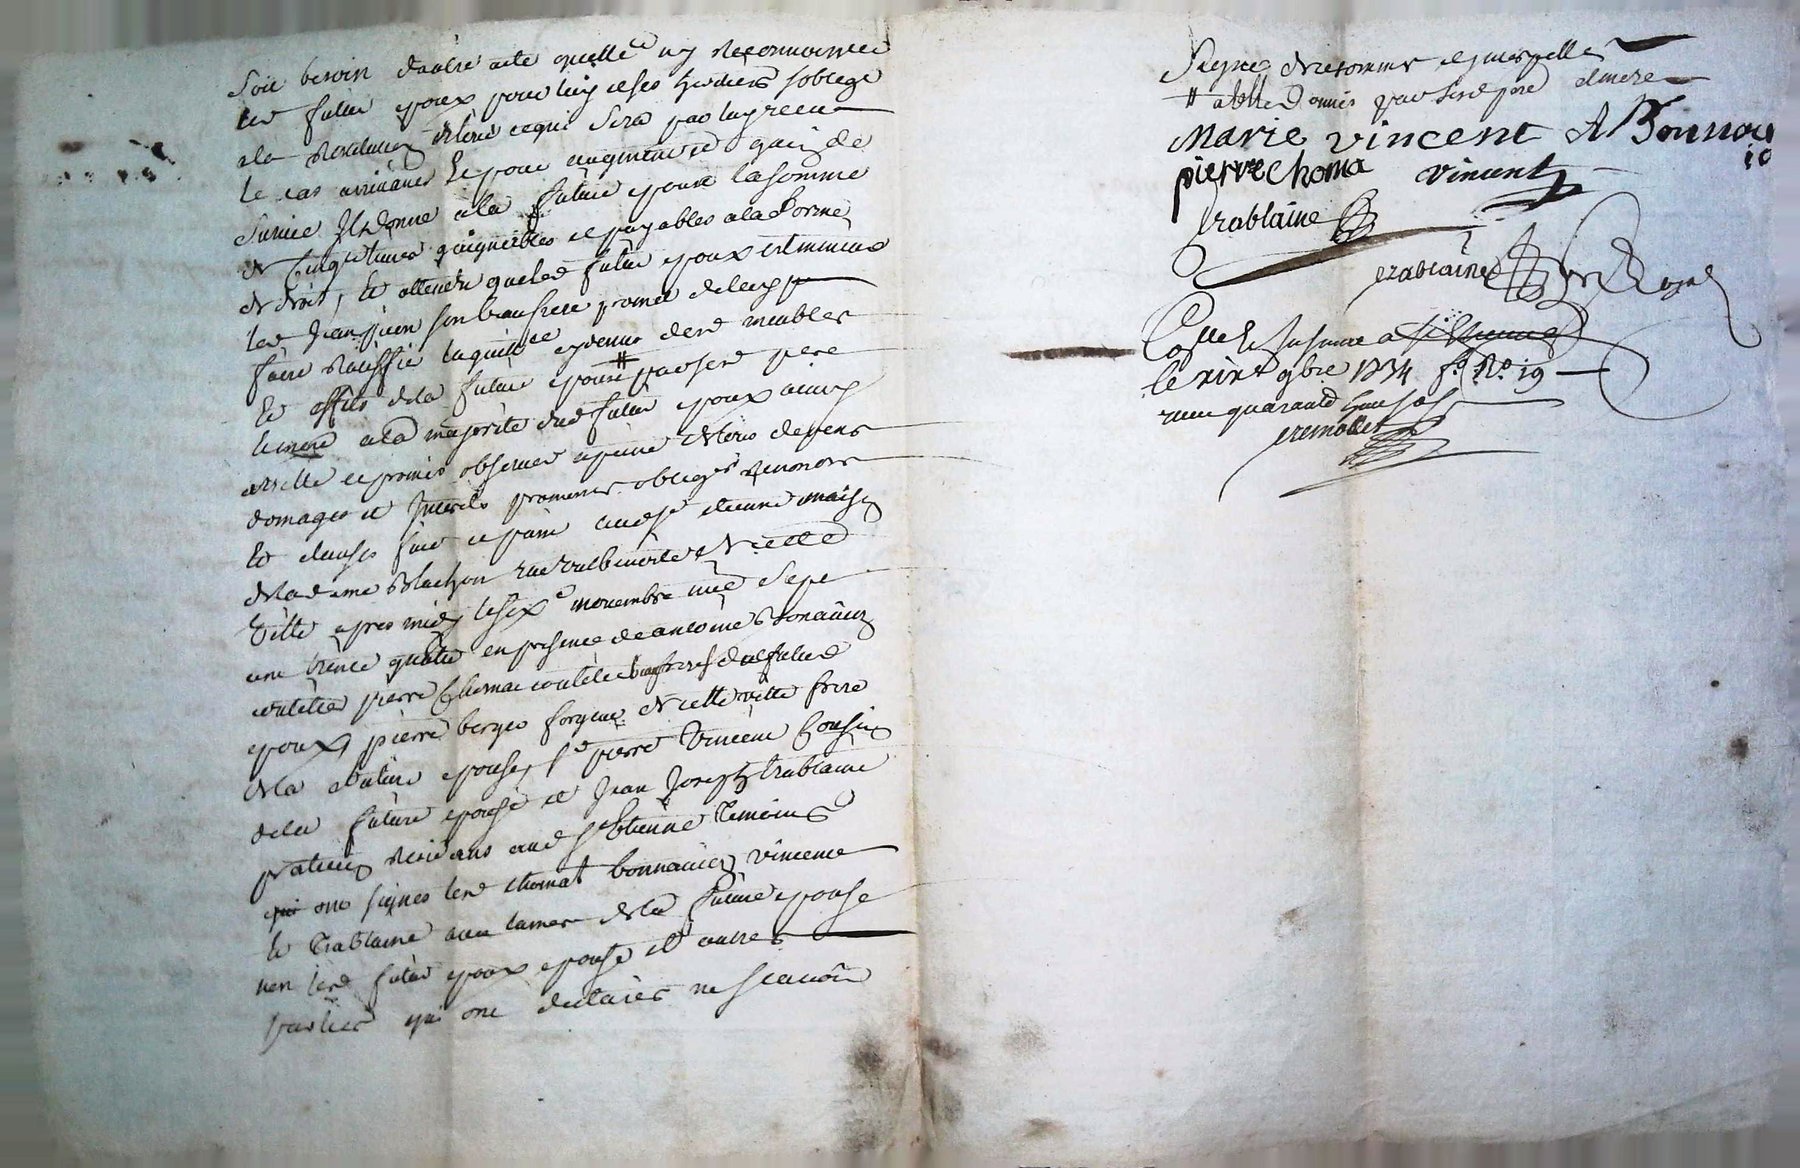 soit besoin dautre acte quelle ny reconnoissance
led futur epoux pour luy et ses heritiers soblige
a la restitution de tout ce qui sera par luy receu
le cas arrivant Et pour augment et gain de
survie Il donne a la future epouse la somme
de Cinq livres gaignables et payables a la forme
de droit, Et attendu que led futur epoux est mineur
led Jean son beaufrere promet de luy
faire ratiffier la quittance des meubles
Et effets de la future epouse # par ses pere
et mere a la majorité dud futur epoux ainsy
et promis observer a peine de tous depens
domages et Interets promesses obliges renonces
Et clauses fait et passé aud St etienne maison
de la dame Blachon rue de cette
ville apres midy le six.e novembre mil sept
cent trente quatre en presence de antoine Bonnavier
coutelier pierre Chomat coutelier beaufreres dud futur
epoux, pierre berger forgeur de cette ville frere
de la future epouse, Sr pierre Vincent Cousin
de la future epouse et Jean Joseph trablaine
praticien residans aud St Etienne temoins
qui ont signes led chomat bonnavier vincent
Et trablaine avec la mere de la future epouse
non led futur epoux epouse et autres
parties qui ont declairés ne scavoir
signer de ce sommes et interpelles
# a elle donnés par ses pere et mere
Marie vincent A Bonnav
pierre choma vincent
trablaine
trablaine
Colle et Insinué a St Etienne
le xix.e 9bre 1734 f.o R.o 19
receu quarante sols